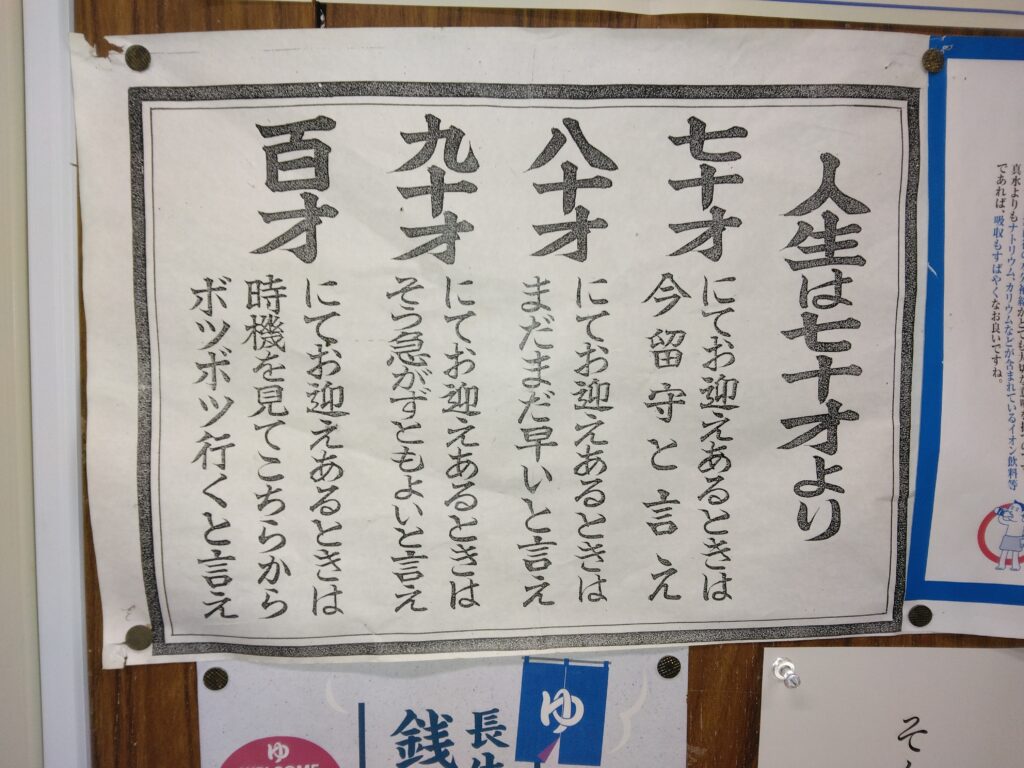 人生は七十才より
七十才
にてお迎えあるときは
今留守と言え
八十才
にてお迎えあるときは
まだまだ早いと言え
九十才
にてお迎えあるときは
そう急がずともよいと言え
百才
にてお迎えあるときは
時機を見てこちらから
ボツボツ行くと言え
真水よりもナトリウムやカリウムなどが含まれているイオン飲料等
であれば、吸収もすばやくなお良いですね。
ゆ
長生
銭
ゆ
WELCOME
そ